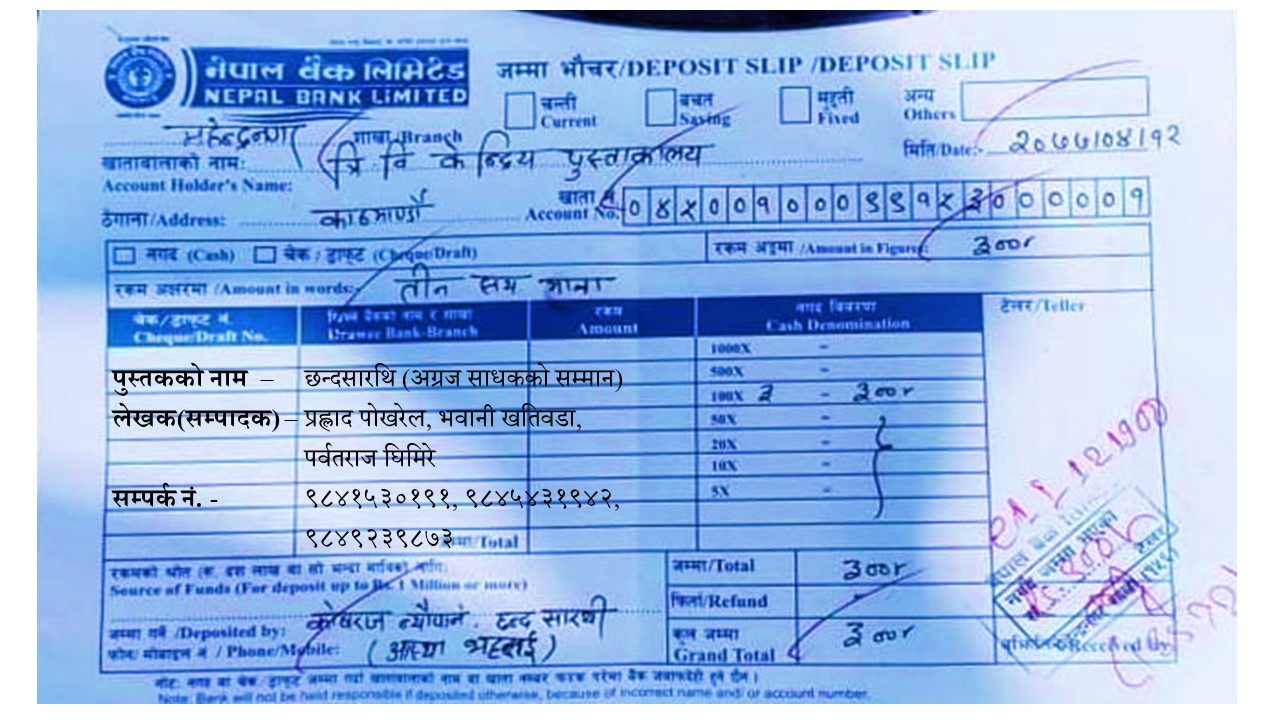 नेपाल बैंक लिमिटेड
NEPAL BANK LIMITED
जम्मा भौचर/DEPOSIT SLIP /DEPOSIT SLIP
चल्ती
Current
बचत
Saving
मुद्दती
Fixed
अन्य
Others
महेन्द्रनगर शाखा/Branch
मिति/Date:- २०७७/०४/१२
खातावालाको नाम: त्रि वि केन्द्रिय पुस्तकालय
Account Holder's Name:
ठेगाना/Address: काठमाण्डौ
खाता नं.
Account No.
नगद (Cash) चेक / ड्राफ्ट (Cheque/Draft)
रकम अङ्कमा /Amount in Figure: ३००।
रकम अक्षरमा /Amount in words:- तीन सय मात्र
चेक/ड्राफ्ट नं.
Cheque/Draft No.
Drawee Bank-Branch
रकम
Amount
नगद विवरण
Cash Denomination
टेलर/Teller
1000X -
500X -
100X ३ - ३००।
50X -
20X -
10X -
5X -
पुस्तकको नाम – छन्दसारथि (अग्रज साधकको सम्मान)
लेखक(सम्पादक) – प्रह्लाद पोखरेल, भवानी खतिवडा,
पर्वतराज घिमिरे
सम्पर्क नं. - ९८४१५३०१९१, ९८४५४३१९४२,
९८४९२३९८७३
जम्मा/Total
Source of Funds (For deposit up to Rs. 1 Million or more)
जम्मा/Total ३००।
फिर्ता/Refund
कूल जम्मा
Grand Total ३००।
जम्मा गर्ने /Deposited by: छन्द सारथी
फोन/ मोबाइल नं / Phone/Mobile:
Received by
Note: Bank will not be held responsible if deposited otherwise, because of incorrect name and/ or account number.